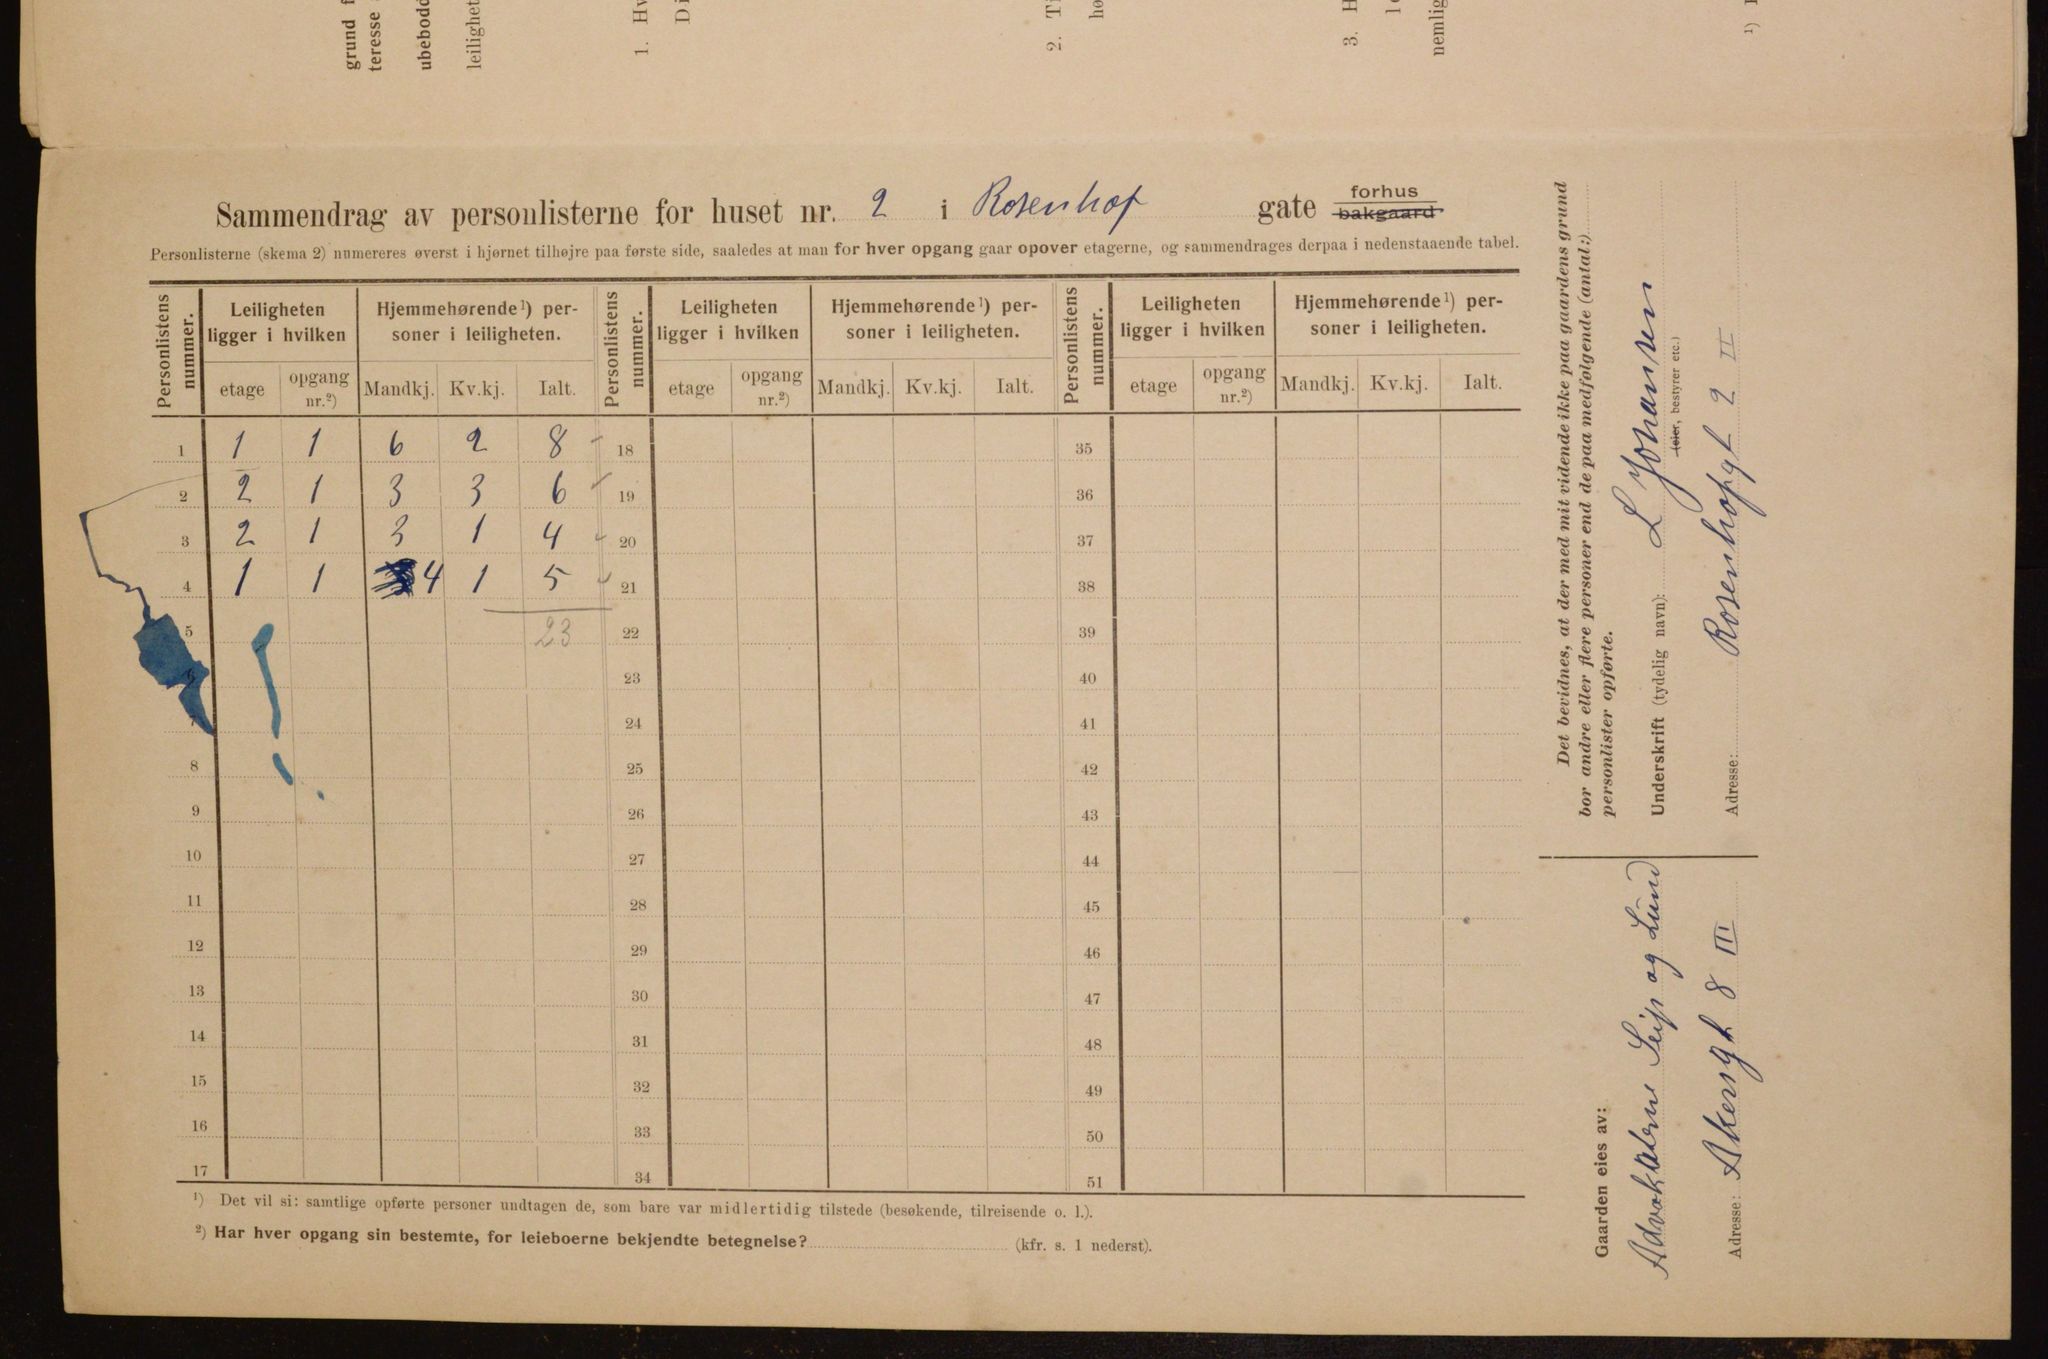 grund f
teresse
ubebodd
leilighet
1. Hv
Di
2. Ti
hø
3. H
nemlig
¹)
Sammendrag av personlisterne for huset nr. 2 i Rosenhof gate forhus bakgaard
Personlisterne (skema 2) numereres øverst i hjørnet tilhøjre paa første side, saaledes at man for hver opgang gaar opover etagerne, og sammendrages derpaa i nedenstaaende tabel.
Personlistens nummer. Leiligheten ligger i hvilken Hjemmehørende¹) personer i leiligheten. Personlistens nummer. Leiligheten ligger i hvilken Hjemmehørende¹) personer i leiligheten. Personlistens nummer. Leiligheten ligger i hvilken Hjemmehørende¹) personer i leiligheten.
etage opgang nr.²) Mandkj. Kv.kj. Ialt. etage opgang nr.²) Mandkj. Kv.kj. Ialt. etage opgang nr.²) Mandkj. Kv.kj. Ialt.
1 1 1 6 2 8 18 35
2 2 1 3 3 6 19 36
3 2 1 3 1 4 20 37
4 1 1 4 1 5 21 38
5 23 22 39
6 23 40
7 24 41
8 25 42
9 26 43
10 27 44
11 28 45
12 29 46
13 30 47
14 31 48
15 32 49
16 33 50
17 34 51
¹) Det vil si: samtlige opførte personer undtagen de, som bare var midlertidig tilstede (besøkende, tilreisende o. l.).
²) Har hver opgang sin bestemte, for leieboerne bekjendte betegnelse? (kfr. s. 1 nederst).
Det bevidnes, at der med mit vidende ikke paa gaardens grund
bor andre eller flere personer end de paa medfølgende (antal:)
personlister opførte.
Underskrift (tydelig navn): L Johansen
(eier, bestyrer etc.)
Adresse: Rosenhofgt 2 II
Gaarden eies av:
Advokaterne Seip og Lund
Adresse: Akersgt 8 III